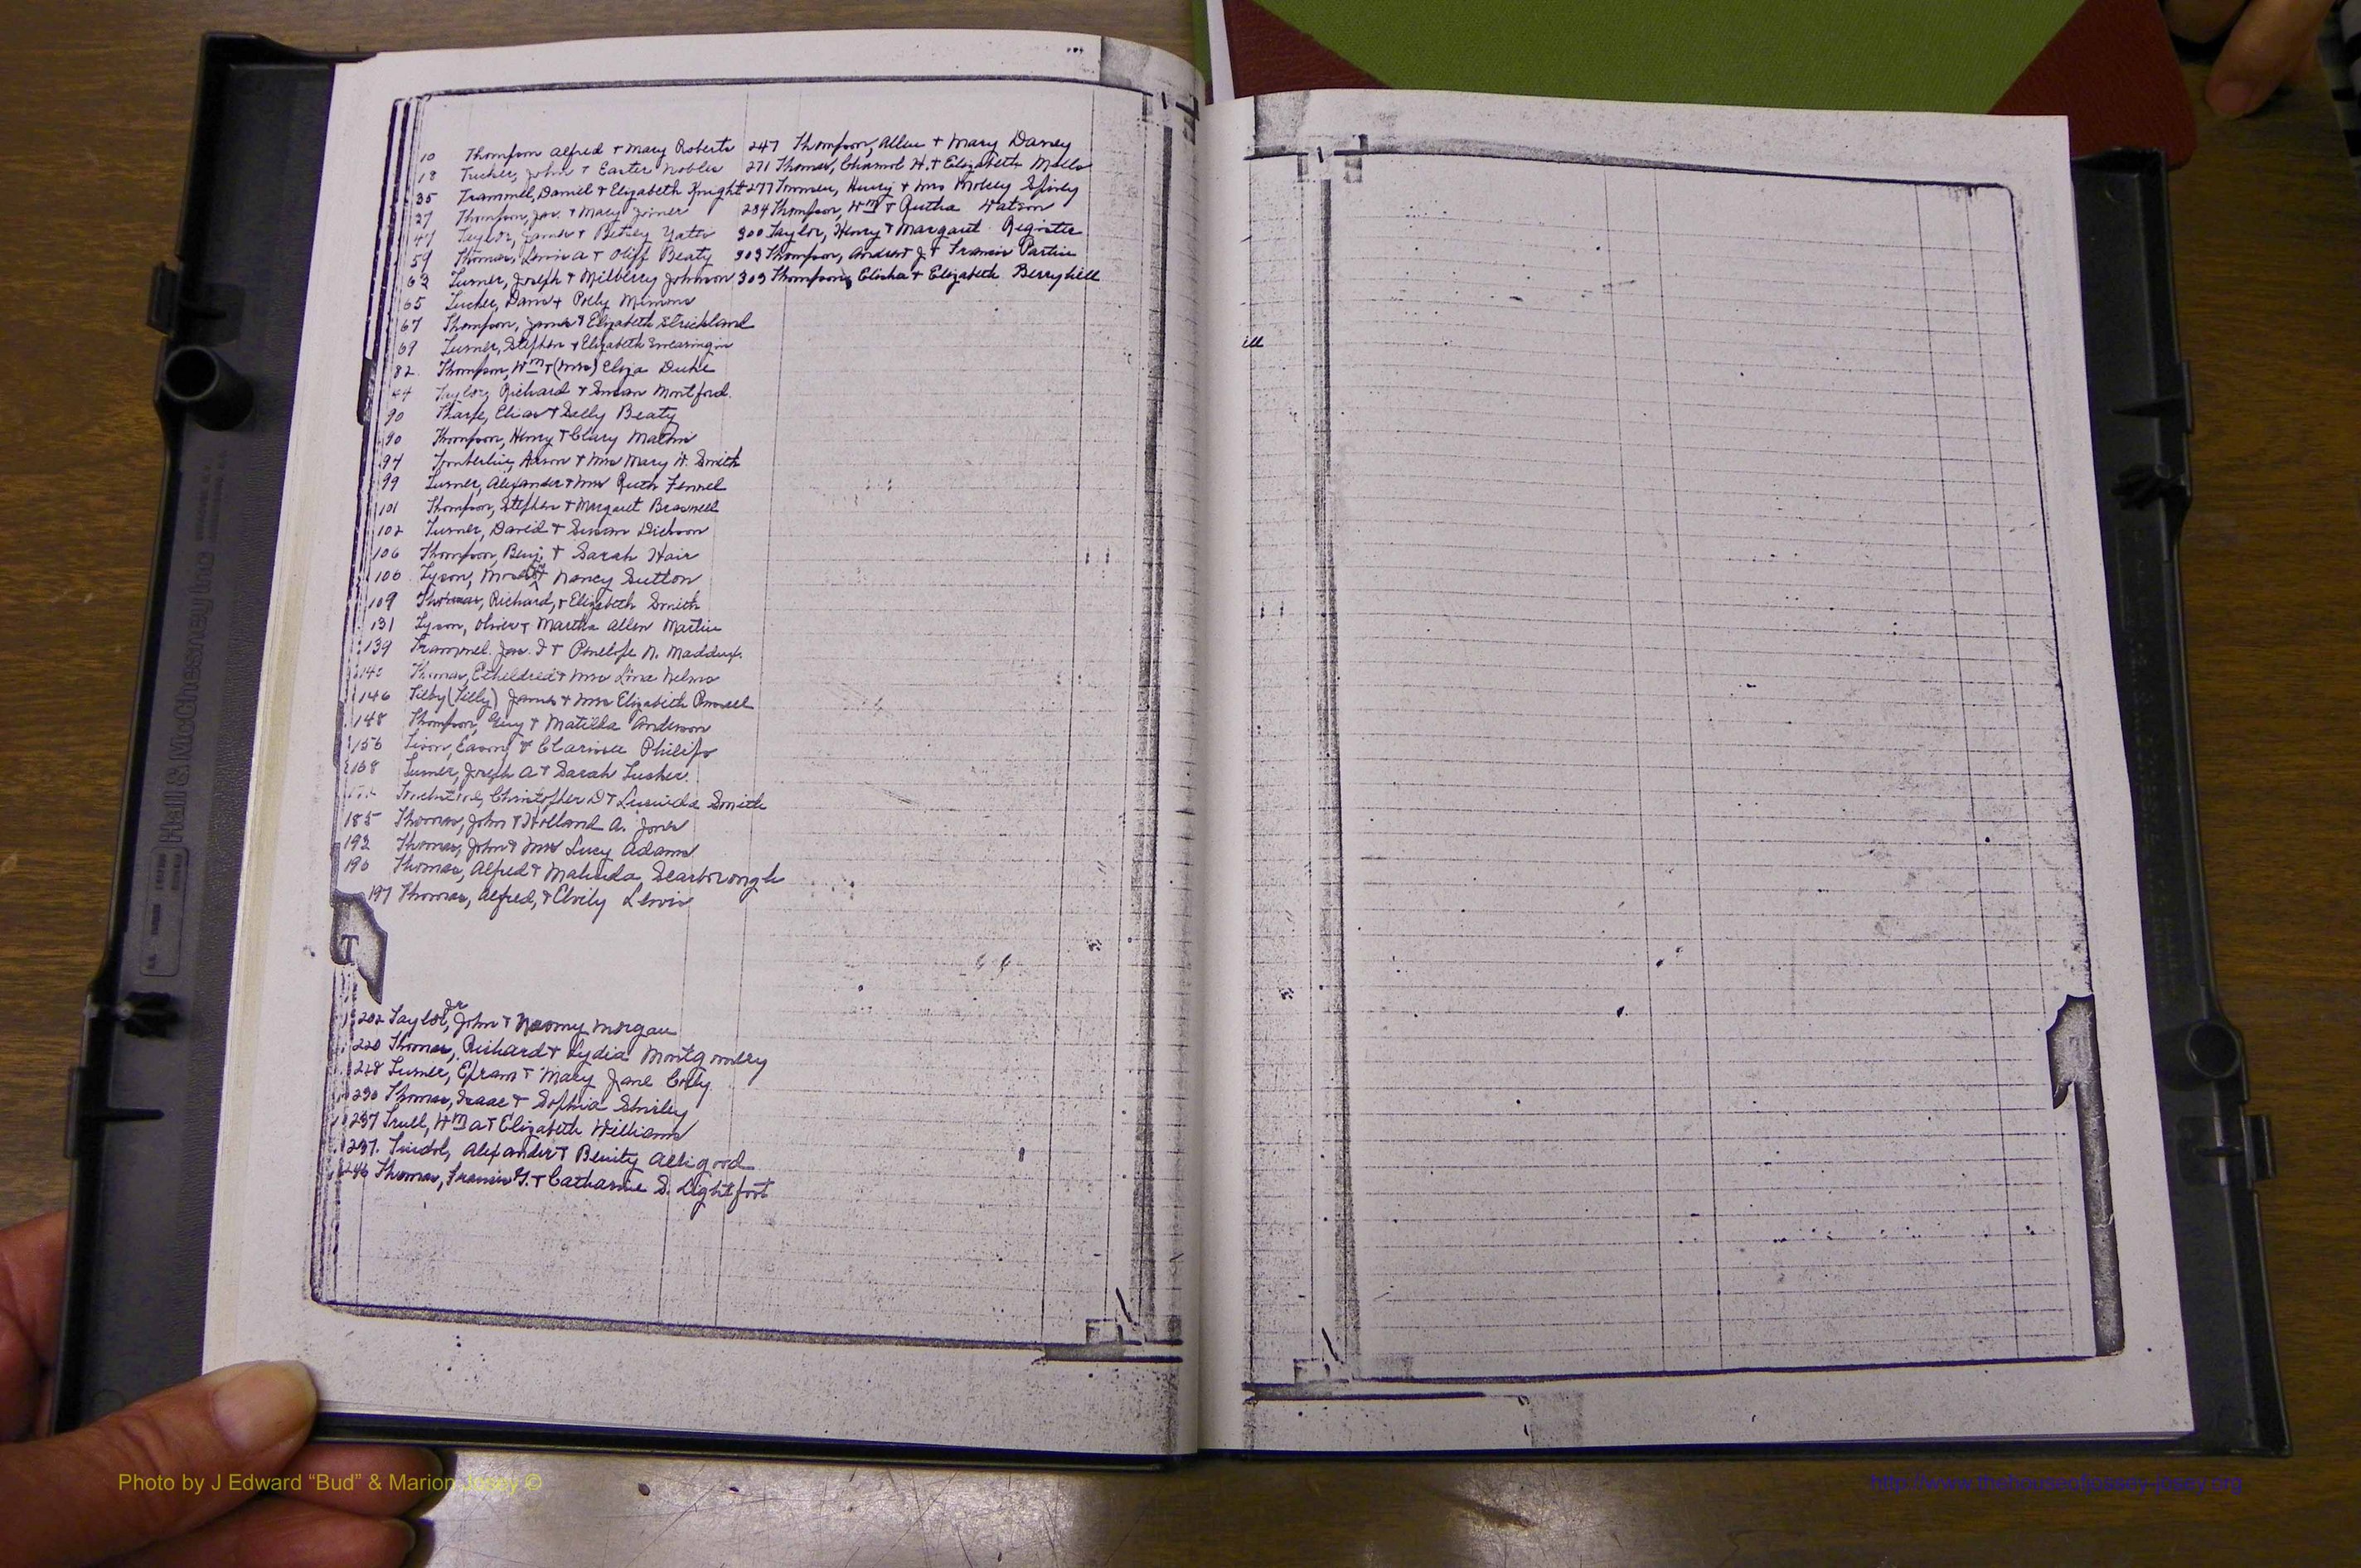 10 Thompson Alfred + Mary Roberts
18 Tucker, John + Easter Nobles
35 Trammel, Daniel + Elizabeth Knight
37 Thompson, Jas. + Mary Joiner
47 Taylor, James + Betsey Yates
59 Thomas, Lewis A + Oliff Beaty
63 Turner, Joseph + Milberry Johnson
65 Tucker, Davis + Polly Mimms
67 Thompson, James + Elizabeth Strickland
69 Turner, Stephen + Elizabeth Swearingin
82 Thompson, Wm + (Mrs) Eliza Duke
Taylor, Richard + Susan Montford.
90 Tharpe, Elias + Sally Beaty
90 Thompson, Henry + Clary
94 Timberlin, Arson + Mrs Mary W. Smith
99 Turner, Alexander + Mrs Ruth Fennel
101 Thompson, Stephen + Margaret Braswell
102 Turner, David + Susan Dickson
106 Thompson, Benj. + Sarah Hair
106 Tyson, + Nancy Sutton
109 Thomas, Richard, + Elizabeth Smith
131 Tyson, Oliver + Martha Allen Martin
139 Trammel. Jas. + Penelope N. Maddux.
Thomas, Etheldred + Mrs Nelms
146 Tilby (Tilly) James + Mrs Elizabeth Powell
148 Thompson, Guy + Matilda Anderson
156 Tison, Eason + Clarisee Philips
168 Turner, Joseph A + Sarah Tucker.
Christopher D + Smith
185 Thomas, John + Holland A. Jones
193 Thomas, John + Mrs Lucy Adams
190 Thomas, Alfred + Malinda Scarborough
197 Thomas, Alfred, + Elvily Lewis
T
202 Taylor, Jr John + Naomy Morgan
220 Thomas, Richard + Lydia Montgomery
228 Turner, Efram + Mary Jane Coly
230 Thomas, Isaac + Sophia Shirley
237 Trull, Wm A + Elizabeth Williams
237. Tindol, Alexander + Benity Alligood
246 Thomas, Francis G. + Catharine S. Lightfoot
247 Thompson, Allen + Mary Daney
271 Thomas, H. + Elizabeth Mills
277 Henry + Mrs Spivey
284 Thompson, Wm + Rutha Watson
300 Taylor, Henry + Margaret Register
303 Thompson, Andrew J + Francis Partin
303 Thompson, Elisha + Elizabeth Berryhill
T
ill
Hall & McChesney Inc
Photo by J Edward “Bud” & Marion Josey ©
http://www.thehouseofjossey-josey.org